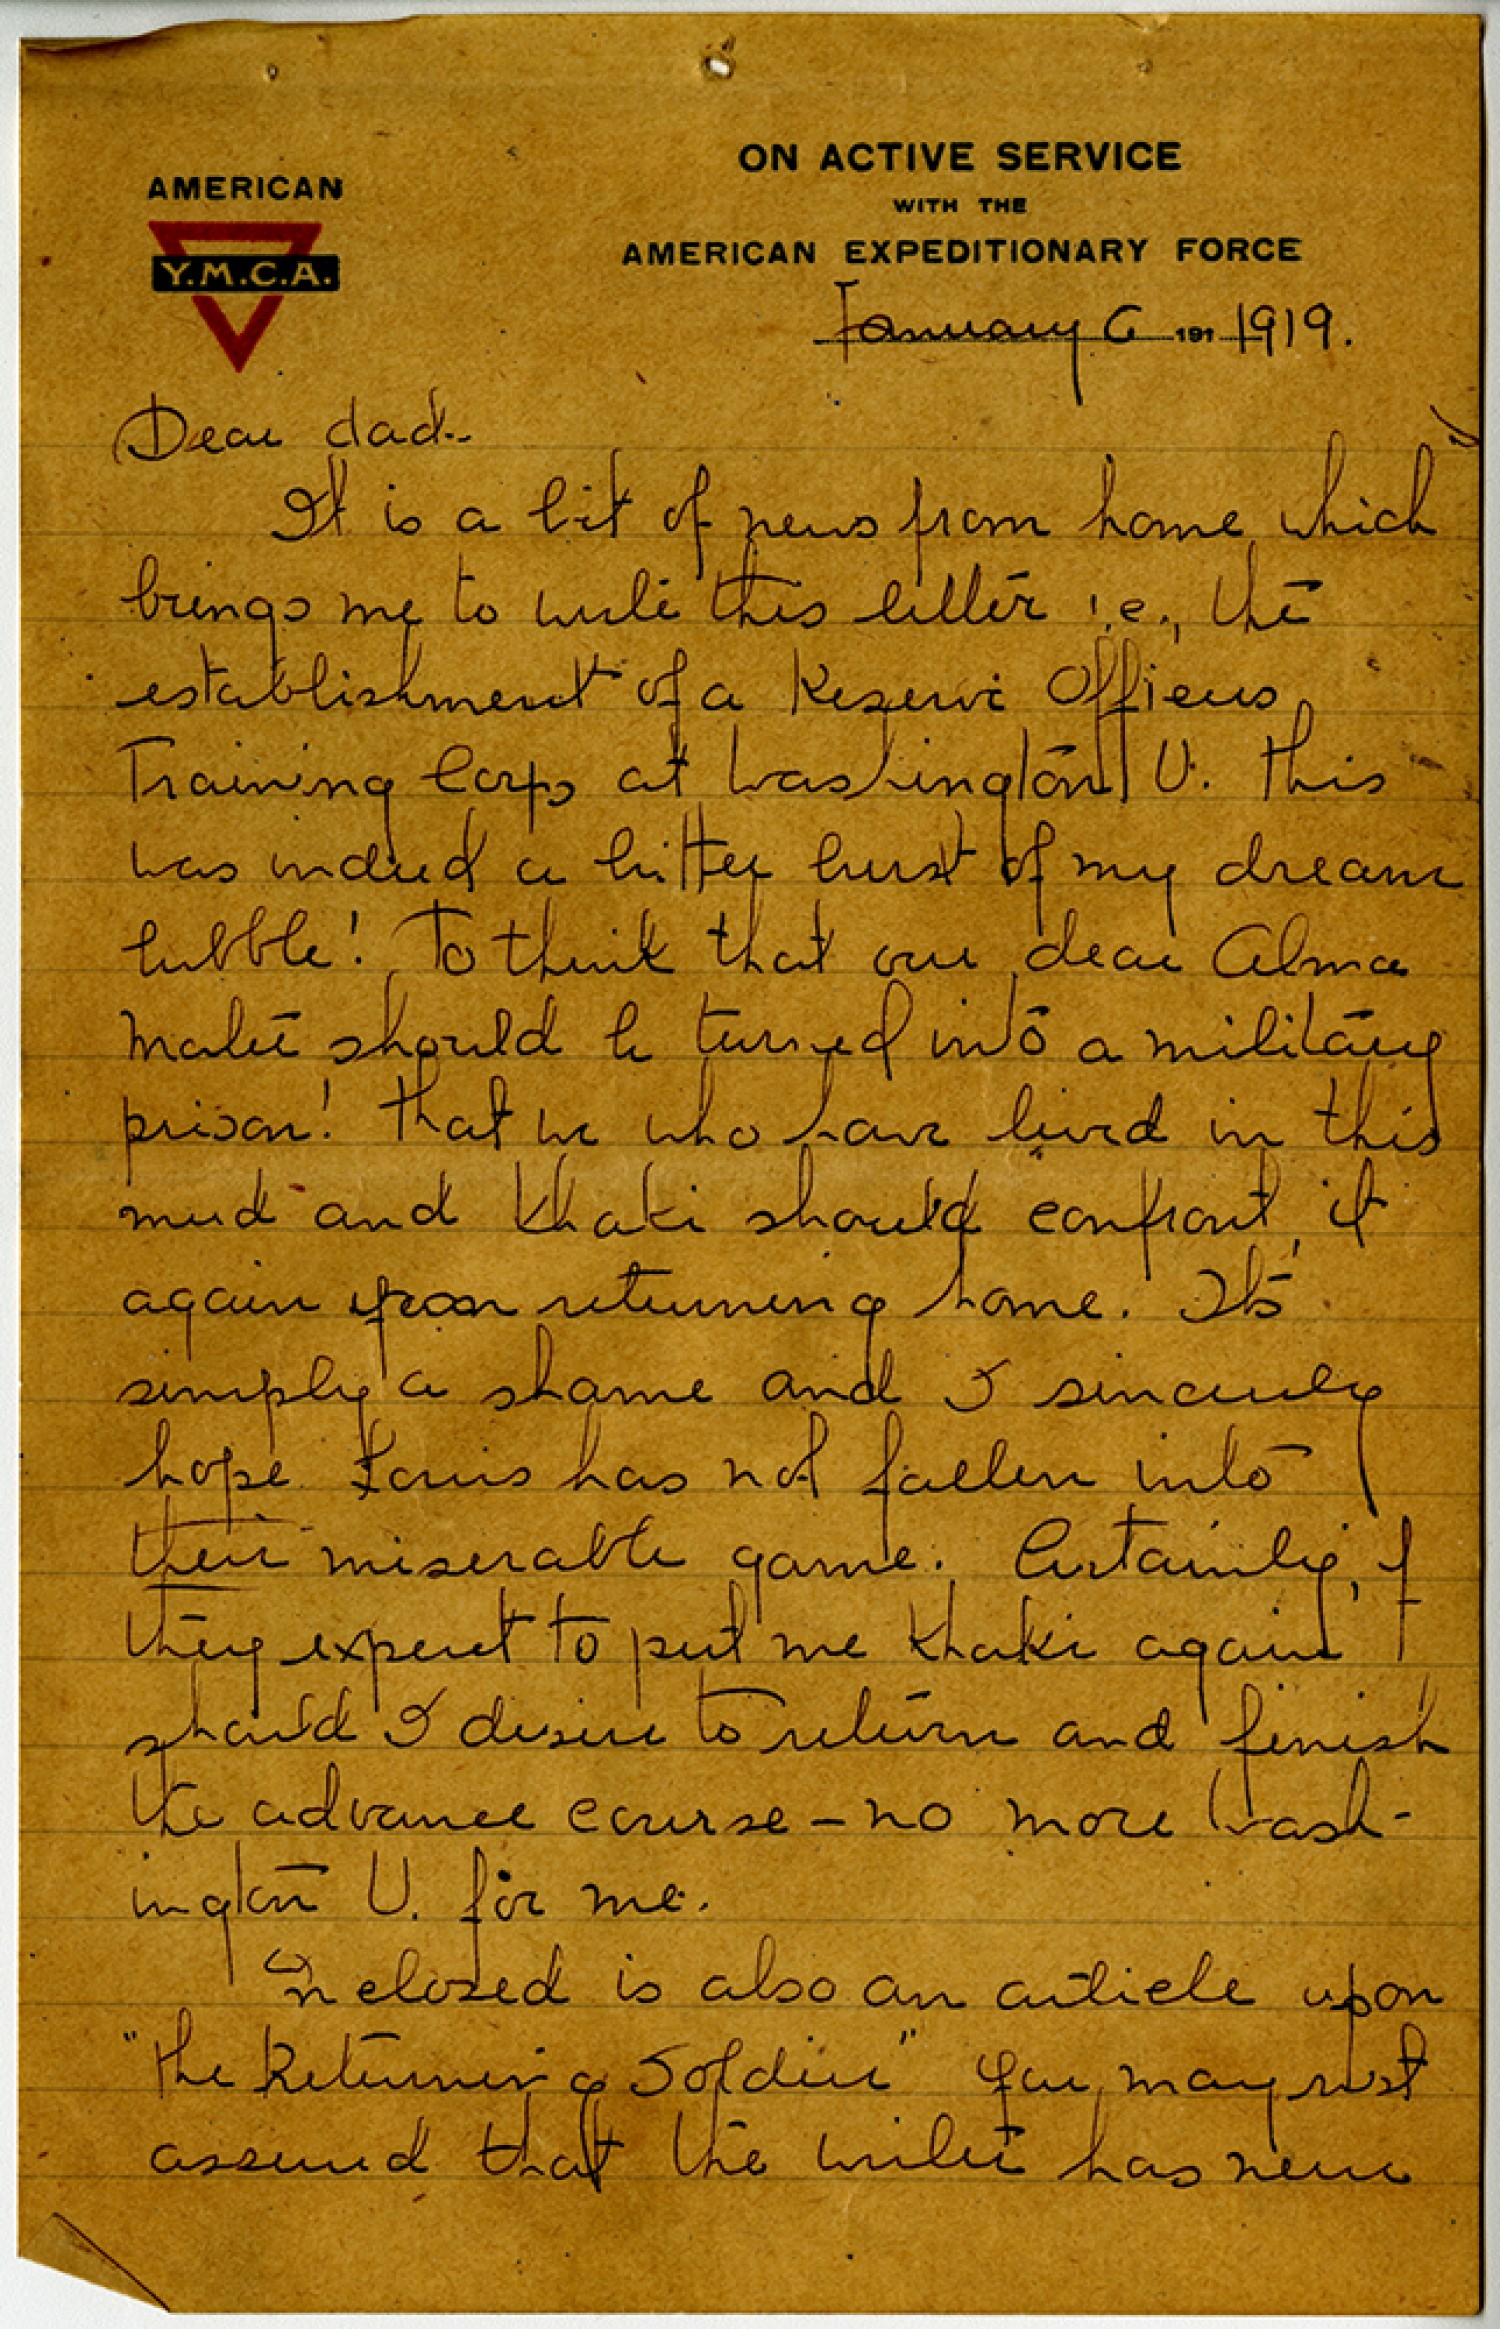 ON ACTIVE SERVICE
WITH THE
AMERICAN EXPEDITIONARY FORCE
AMERICAN
Y.M.C.A.
January 6 191 1919.
Dear dad..
It is a bit of news from home which
brings me to write this letter i.e., the
establishment of a Reserve Officers
Training Corps at Washington U. This
was indeed a bitter burst of my dream
bubble! To think that our dear Alma
Mater should be turned into a military
prison! That we who have lived in this
mud and khaki should confront it
again upon returning home. Its
simply a shame and I sincerely
hope Louis has not fallen into
their miserable game. Certainly, if
they expect to put me khaki again
should I desire to return and finish
the advance course - no more Wash-
ington U. for me.
Enclosed is also an article upon
"The Returning Soldier" You may rest
assured that the writer has never